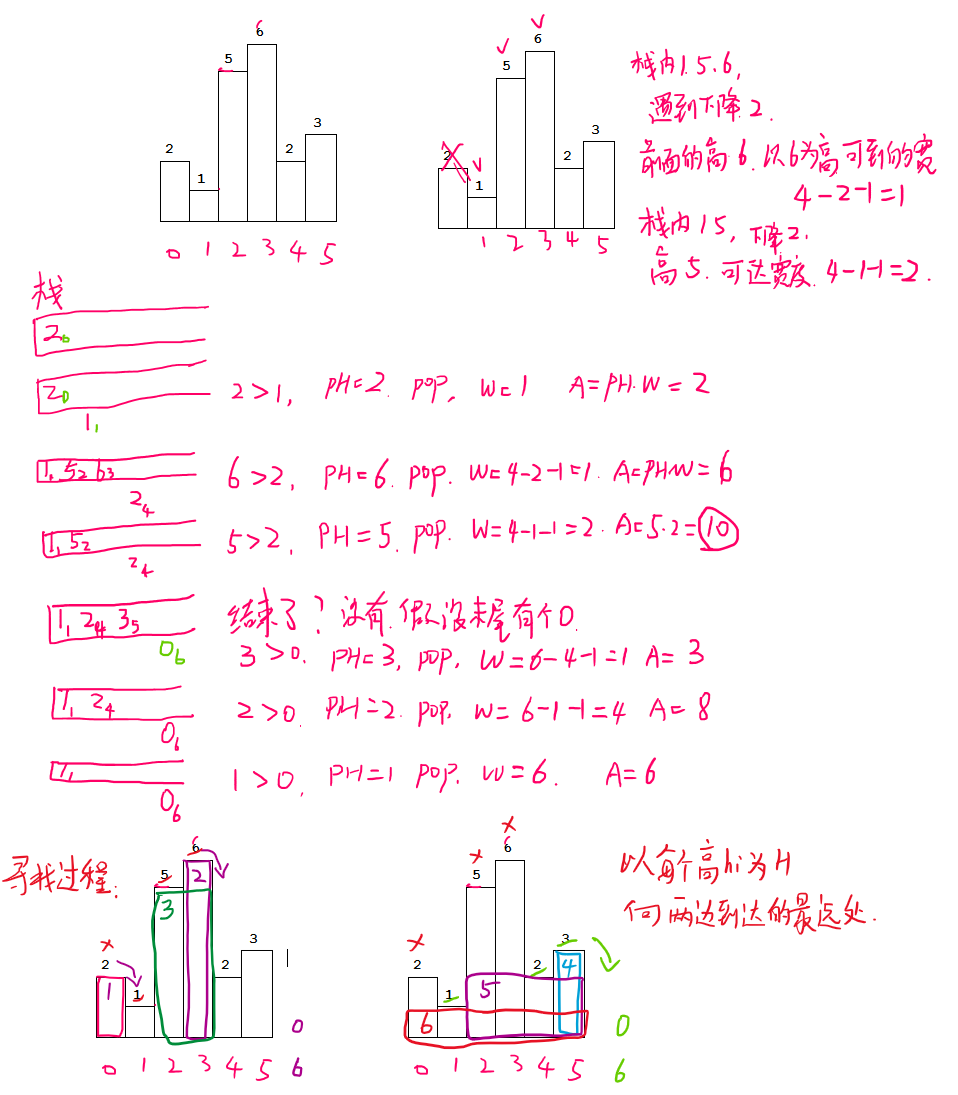 6
5
2
1
2
3
0 1 2 3 4 5
6
5
2
1
2
3
1 2 3 4 5
栈内1.5.6,
遇到下降2.
前面的高6.以6为高可到的宽
4-2-1=1
栈内15,下降2.
高5.可达宽度.4-1-1=2.
栈
2₀
2₀
1₁
2>1, PH=2. pop. W=1 A=PH.W=2
1₁ 5₂ 6₃
2₄
6>2, PH=6. pop. W=4-2-1=1. A=PH.W=6
1₁ 5₂
2₄
5>2, PH=5. pop. W=4-1-1=2. A=5.2=10
1₁ 2₄ 3₅
0₆
结束了?没有.假设末尾有个0.
3>0. PH=3, pop. W=6-4-1=1 A=3
1₁ 2₄
0₆
2>0. PH=2. pop. W=6-1-1=4 A=8
1₁
0₆
1>0. PH=1 pop. W=6. A=6
寻找过程:
6
5
2
1
2
3
1
2
3
0
0 1 2 3 4 5 6
6
5
2
1
2
3
4
5
6
0
0 1 2 3 4 5 6
以每个高hi为H
向两边到达的最远处.